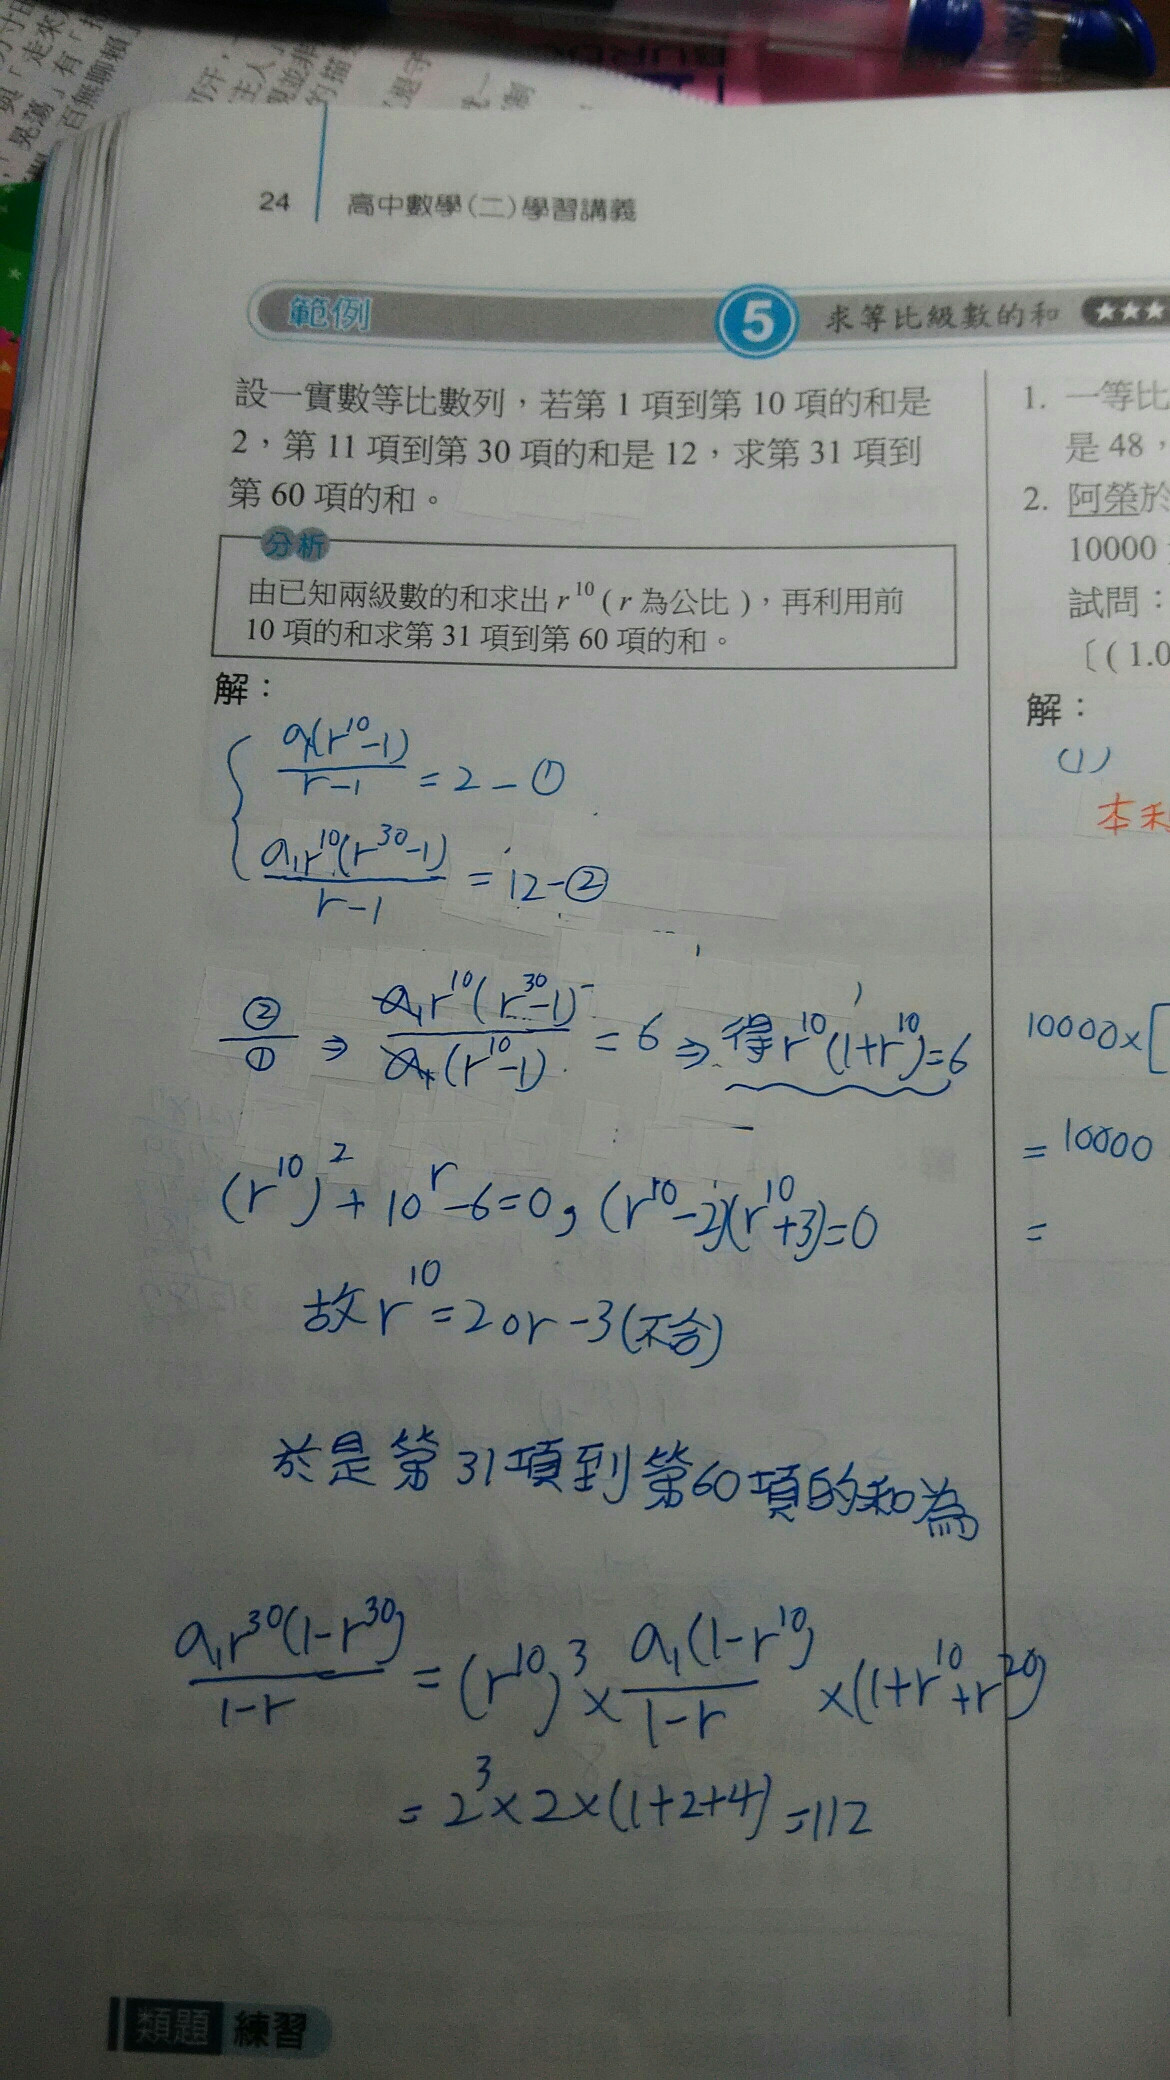 24 高中數學(二)學習講義
範例 5 求等比級數的和 ★★★
設一實數等比數列，若第 1 項到第 10 項的和是
2，第 11 項到第 30 項的和是 12，求第 31 項到
第 60 項的和。
分析
由已知兩級數的和求出 r¹⁰ ( r 為公比 )，再利用前
10 項的和求第 31 項到第 60 項的和。
解：
a₁(r¹⁰-1)/r-1 = 2 - ①
a₁r¹⁰(r³⁰-1)/r-1 = 12-②
②/① ⇒ a₁r¹⁰(r³⁰-1)/a₁(r¹⁰-1) = 6 ⇒ 得r¹⁰(1+r¹⁰)=6
(r¹⁰)² + 10ʳ-6=0, (r¹⁰-2)(r¹⁰+3)=0
故r¹⁰=2or-3(不合)
於是第31項到第60項的和為
a₁r³⁰(1-r³⁰)/1-r = (r¹⁰)³×a₁(1-r¹⁰)/1-r×(1+r¹⁰+r²⁰)
=2³×2×(1+2+4)=112
類題 練習
1. 一等比
是 48，
2. 阿榮於
10000
試問：
〔( 1.0
解：
(1)
本利
10000×[
= 10000
=